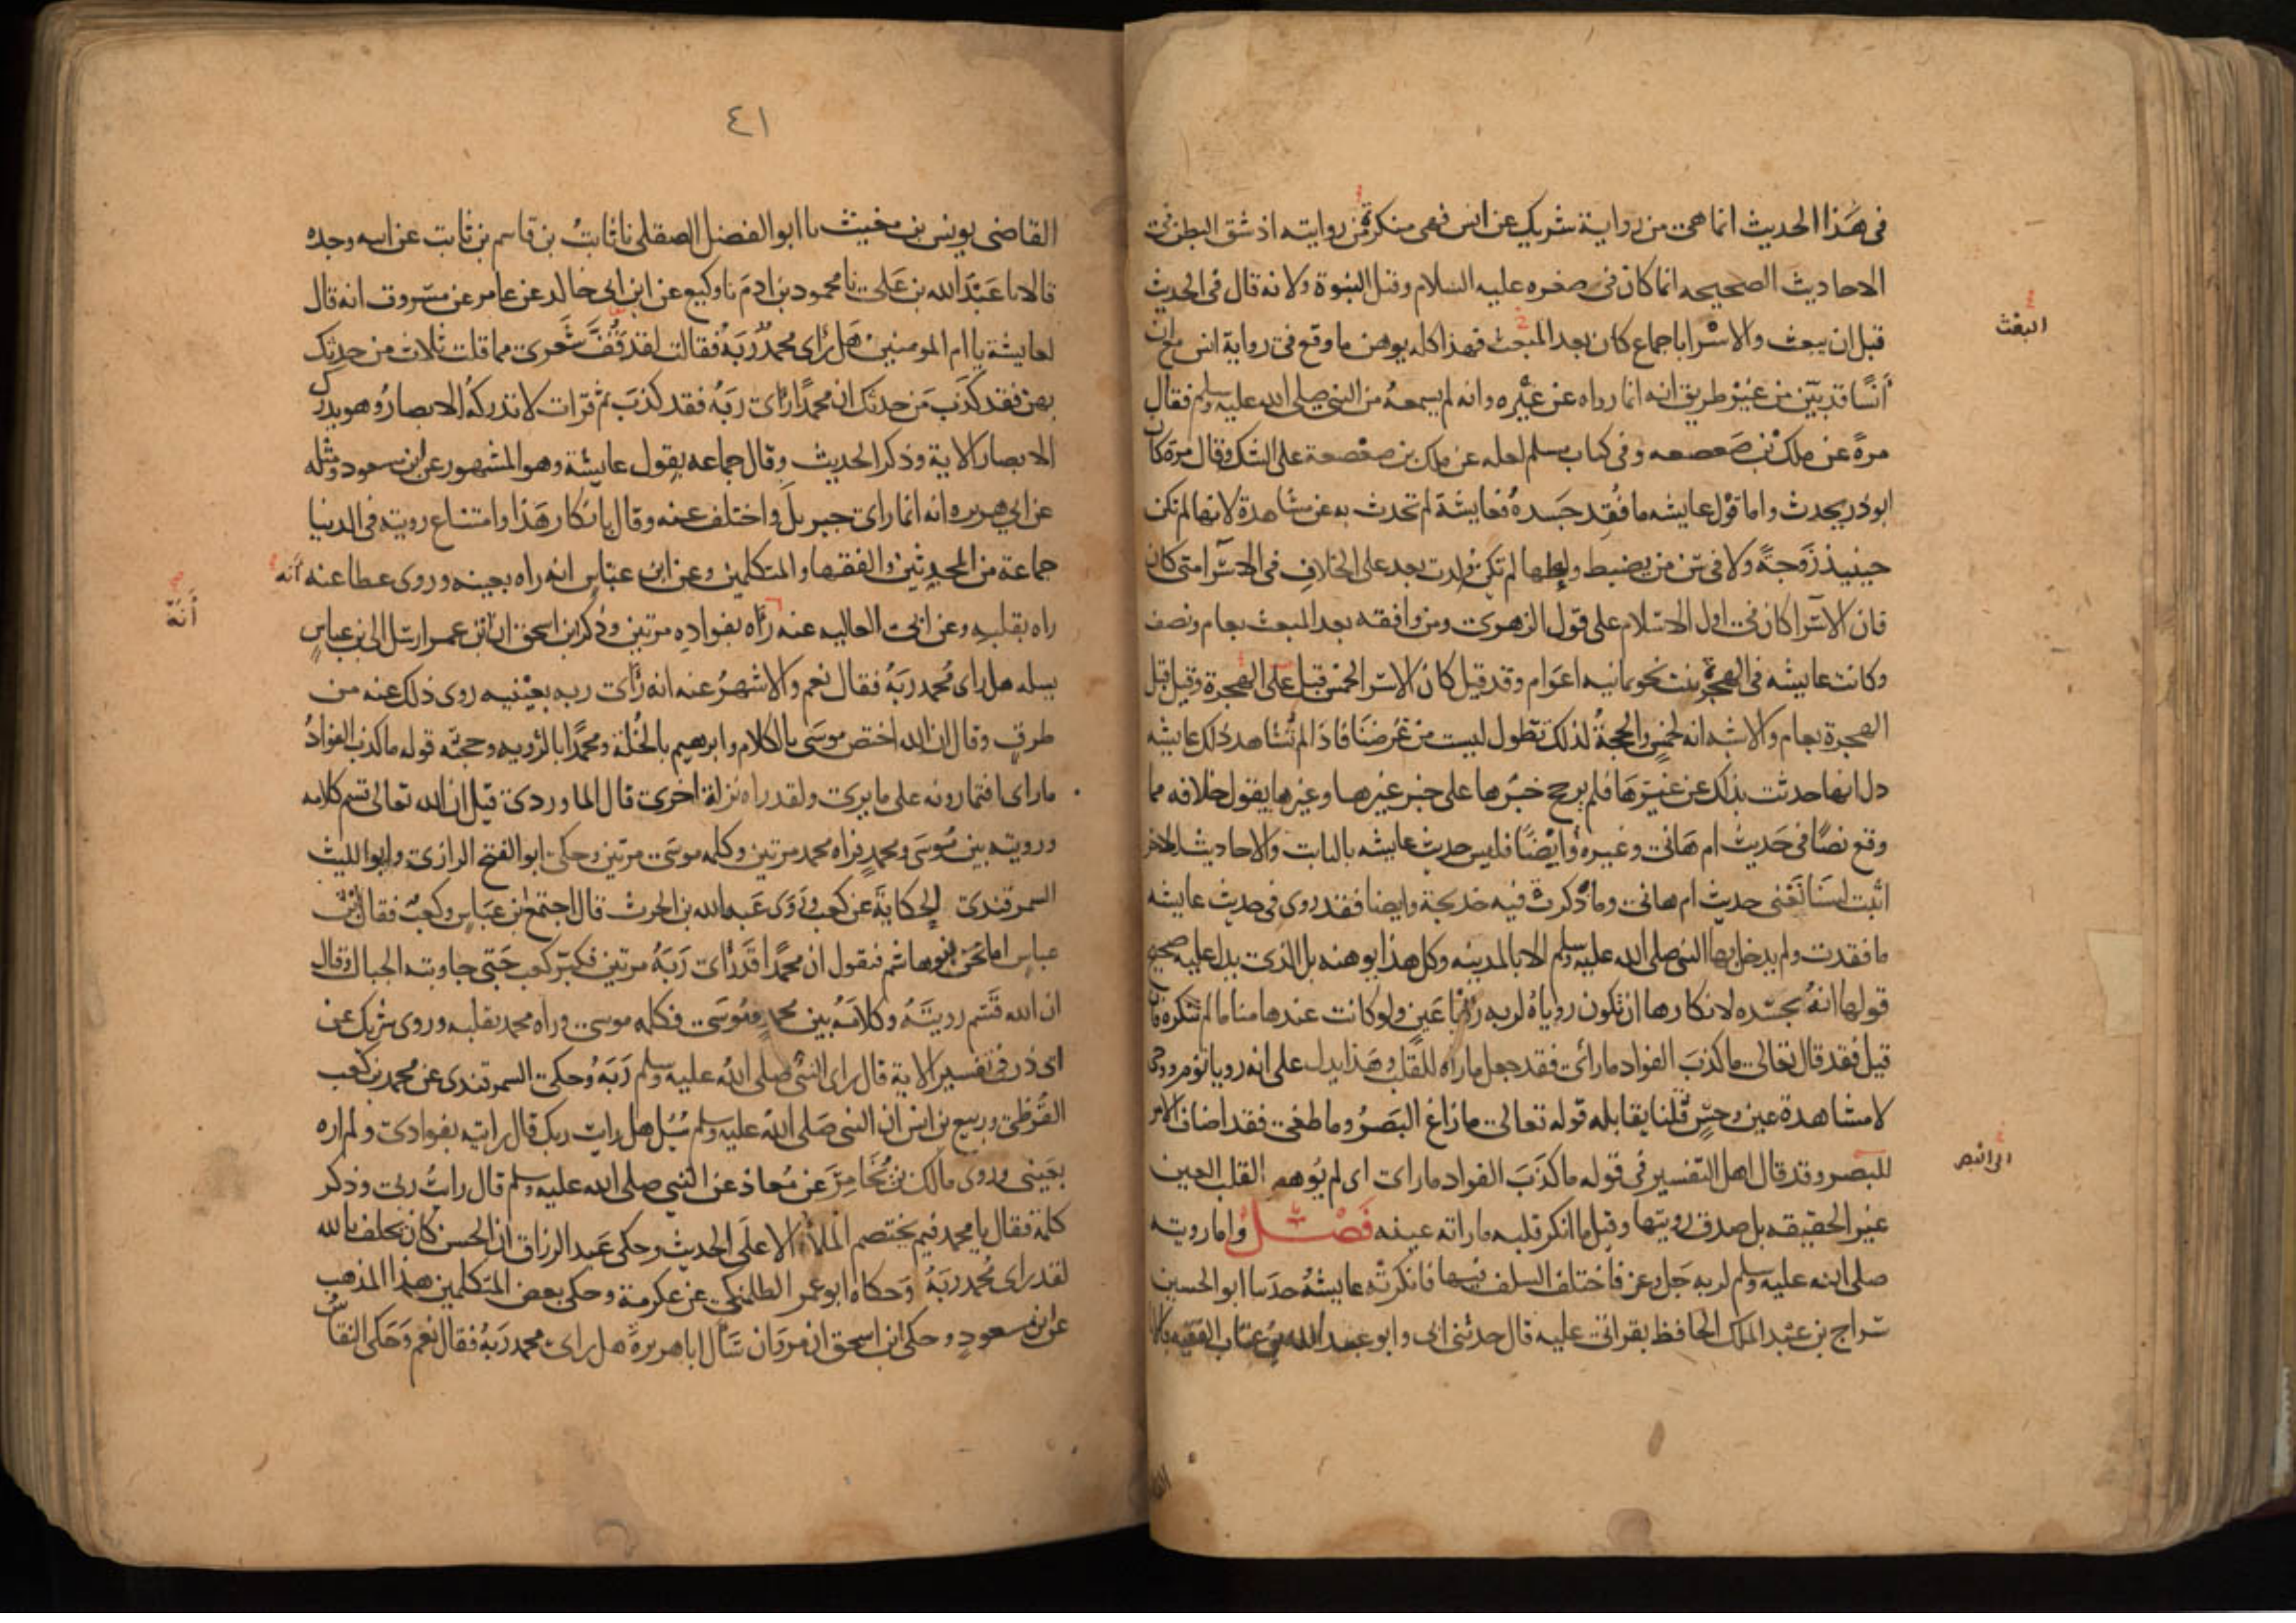 في هذا الحديث انما هي من رواية شريك عن انس فهي منكرة من روايته اذ شق البطن في
الاحاديث الصحيحه انما كان في صغره عليه السلام وقبل النبوة ولانه قال في الحديث
قبل ان يبعث والاسرا باجماع كان بعد المبعث فهذا كله يوهن ما وقع في رواية انس مع ان
البعث
أنسًا قد بيّن من غير طريق انه انما رواه عن غيره وانه لم يسمعه من النبي صلى الله عليه وسلم فقال
مرةً عن ملك بن صَعصعه وفي كتاب مسلم لعله عن ملك بن صعصعة على الشك وقال مرة كان
ابو ذر يحدث واما قول عايشه ما فُقِد جَسَدهُ فعايشة لم تحدث به عن مشاهدة لانها لم تكن
حينيذ زَوجةً ولا في سن من يضبط ولعلها لم تكن ولدت بعد على الخلاف في الاسرا متى كان
فان الاسرا كان في اول الاسلام على قول الزهري ومن وافقه بعد المبعث بعام ونصف
وكانت عايشه في الهجرة بنت نحو ثمانيه اعوام وقد قيل كان الاسرا لخمس قبل الهجرة وقيل قبل
الهجرة بعام والاشبه انه لخمس والحجةُ لذلك تطول ليست من غرضنا فاذا لم تُشاهد ذلك عايشه
دل انها حدثت بذلك عن غيرها فلم يرجح خبرها على خبر غيرها وغيرها يقول خلافه مما
وقع نصًا في حَديث ام هَانئ وغيره وأيضًا فليس حديث عايشه بالثابت والاحاديث الاخر
اثبت لسنا نَعْني حديث ام هانئ وما ذكرت فيه خديجة وايضا فقد روى في حديث عايشه
ما فقدت ولم يدخل بها النبي صلى الله عليه وسلم الا بالمدينه وكل هذا يوهنه بل الذي يدل عليه صحيح
قولها انهُ بجسَده لانكارها ان تكون روياهُ لربه رُؤيا عَينٍ ولو كانت عندها مناما لم تنكره فان
قيل فقد قال تعالى ما كذب الفواد ما رأى فقد جعل ما راه للقلب وهذا يدل على انه رويا نوم ووحي
لا مشاهدة عين وحسٍّ قلنا يقابله قوله تعالى ما زاغ البَصَرُ وما طغى فقد اضاف الامر
للبصر وقد قال اهل التفسير في قوله ما كذَبَ الفواد ما راى اى لم يُوهم القلب العين
غير الحقيقه بل صدق رويتها وقيل ما انكر قلبه ما راته عينه فَصْـــل واما رويته
صلى الله عليه وسلم لربه جَل وعز فاختلف السلف فيها فانكرته عايشهُ حدثنا ابو الحسين
سراج بن عبد الملك الحافظ بقراتي عليه قال حدثني ابي وابو عبد الله بن عتاب الفقيه قالا
٤١
القاضي يونس بن مغيث نا ابو الفضل الصقلي نا ثابتُ بن قاسم بن ثابت عن ابيه وجده
قالا نا عَبْدُ الله بن عَلي نا محمود بن ادمَ نا وكيع عن ابن ابي خالد عن عامر عن مسروق انه قال
لعايشة يا ام المومنين هَل رَاى محمدٌ رَبهُ فقالت لقد قَفَّ شَعَرى مما قلت ثلاث من حدثك
بهن فقد كذب مَن حدثك ان محمدًا راَى ربَهُ فقد كذبَ ثم قرات لا تدركه الابصارُ وهو يدرك
الابصار الاية وذكر الحديث وقال جماعه بقول عايشة وهو المشهور عن ابن مسعود ومثله
عن ابي هريره انه انما راى جبريل واختلف عنه وقال بانكار هَذا وامتناع رويته في الدنيا
جماعة من المحدثين والفقها والمتكلمين وعن ابن عباسٍ انه راه بعينه وروى عطا عنه أنه
أَنَهّ
راه بقلبهِ وعن ابي العاليه عنه رَاه بفوادِهِ مرتين وذكر ابن اسحق ان ابن عمر ارسَل الى ابن عباسٍ
يسله هل راى مُحمد ربَهُ فقال نعم والاشهرُ عنه انه رأى ربه بعَيْنيه روى ذلك عنه من
طرقٍ وقال ان الله اختص موسَى بالكلام وابرهيم بالخُلة ومحمدًا بالرُويه وحجته قوله ما كذب الفوادُ
ما راى افتمارونه على ما يرى ولقد راه نزلة اخرى قال الماوردى قيل ان الله تعالى قسم كلامه
ورويته بين مُوسَى ومحمدٍ فراه محمد مرتين وكلمه موسى مرتين وحكى ابو الفتح الرازي وابو الليث
السمرقندى الحكايَة عن كعب ورَوَى عَبد الله بن الحرث قال اجتمع ابن عبَاس وكعبٌ فقال ابن
عباس اما نحن بنو هاشم فنقول ان محمدًا قد رأى رَبَهُ مرتين فكبّر كعب حَتى جاوبته الجبال وقال
ان الله قَسَم رويتَهُ وكلامَهُ بين محمدٍ ومُوسَى فكلمه موسى وراه محمد بقلبه وروى شريك عن
ابى ذر في تفسير الاية قال راى النبي صلى الله عليه وسلم رَبَهُ وحكى السمرقندى عن محمد بن كعب
القُرظي وربيع بن انس ان النبي صَلى الله عليه وسلم سُئِل هل رايت ربك قال رايته بفوادى ولم اره
بعَيني وروى مالك بن يُخَامِرَ عَن مُعاذ عن النبي صلى الله عليه وسلم قال رايتُ ربى وذكر
كلمة فقال يا محمد فيم يختصم الملأ الاعلَى الحديث وحكى عَبد الرزاق ان الحسن كان يحلف بالله
لقد راى مُحمد ربَهُ وَحكاه ابو عمر الطلمنكي عن عكرمة وحكى بعض المتكلمين هذا المذهب
عن ابن مسعودٍ وحكى ابن اسحق ان مروان سَأل ابا هريرةَ هل راى محمد رَبهُ فقال نعم وَحَكى النقاشُ